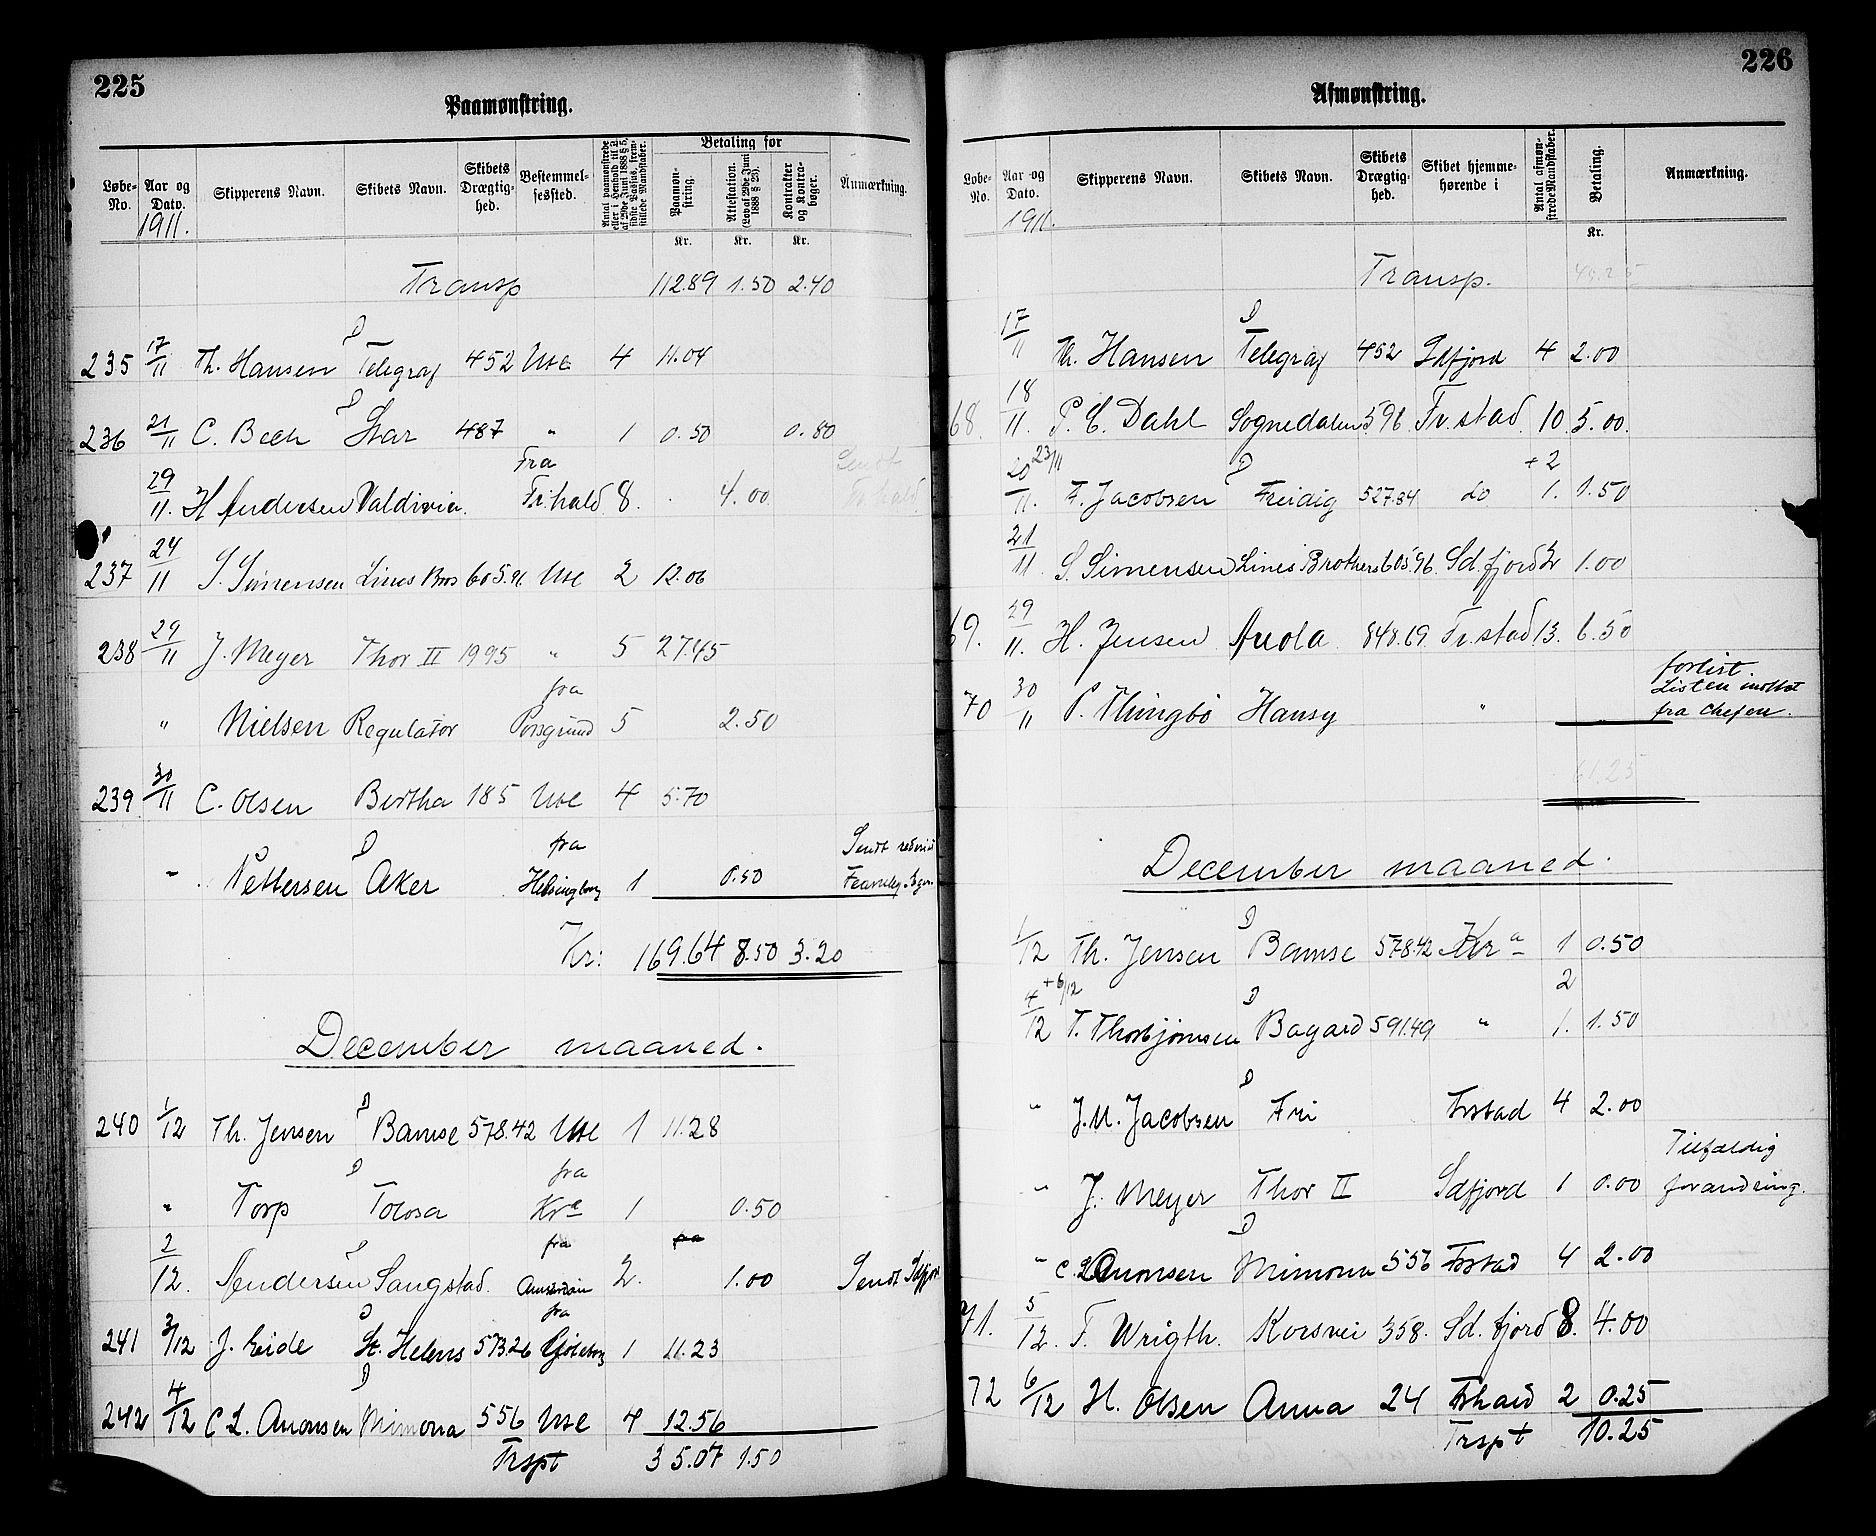 225
Paamønstring.
Løbe-No. Aar og Dato. Skipperens Navn. Skibets Navn. Skibets Drægtighed. Bestemmelsessted. Betaling for Paamønstring. Attestation. (Lov af 29de Juni 1888 § 23). Kontrakter og Kontrabøger. Anmærkning.
1911.
Kr. Kr. Kr.
Transp 112.89 1.50 2.40
235 17/11 Th. Hansen D Telegraf 452 Ute 4 11.04
236 21/11 C. Bech D Star 487 " 1 0.50 0.80
29/11. H Andersen Valdivia. Fra Frihald 8. 4.00 Sendt Frhald
237 24/11 S. Simensen Lines Bros 605.96 Ute 2 12.06
238 29/11 J. Meyer Thor II 1995 " 5 27.45
" Nielsen Regulator fra Porsgrund 5 2.50
239 30/11 C. Olsen Bertha 185 Ute 4 5.70
" Pettersen D Aker fra Helsingborg 1 0.50 Sendt
Kr: 169.64 8.50 3.20
December maaned.
240 1/12 Th. Jensen D Bamse 578.42 Ute 1 11.28
" Torp D Tolosa fra Kra 1 0.50
2/12. Andersen D Sangstad. fra 2. 1.00 Sendt Sdfjord
241 3/12 J. Eide D St. Helens 573.26 fra Gøteborg 1 11.23
242 4/12 C L. Amonsen D Mimona 556 Ute 4 12.56
Trspt 35.07 1.50
226
Afmønstring.
Løbe-No. Aar og Dato. Skipperens Navn. Skibets Navn. Skibets Drægtighed. Skibet hjemmehørende i Antal afmønstrede Mandskaber. Betaling. Anmærkning.
1911.
Kr.
Transp. 45.25
17/11 Th. Hansen D Telegraf 452 Sdfjord 4 2.00
68. 18/11. P. C. Dahl Sognedalen 596 Fr.stad 10 5.00.
20/11. 23/11 F. Jacobsen D Freidig 527.84 do 1. +2 1.50
21/11 S. Simensen Lines Brothers 605.96 Sd.fjord 2 1.00
69. 29/11. H. Jensen Areola 848.69 Fr.stad 13. 6.50
70 30/11 P. Thingbø Hansy " forlist. Listen indtat fra chefen.
61.25
December maaned.
1/12 Th. Jensen D Bamse 578.42 Kra 1 0.50
4/12 +6/12 T. Thorbjørnsen D Bagard 591.49 " 1. 2 1.50
" J. M. Jacobsen D Fri Frstad 4 2.00
" J. Meyer Thor II Sdfjord 1 0.00 Tilfældig forandring.
" C. L. Amonsen D Mimona 556 Frstad 4 2.00
71. 5/12. F. Wrigth. Korsvei 358. Sd.fjord 8. 4.00
72 6/12 H. Olsen Anna 24 Frhald 2 0.25
Trspt 10.25